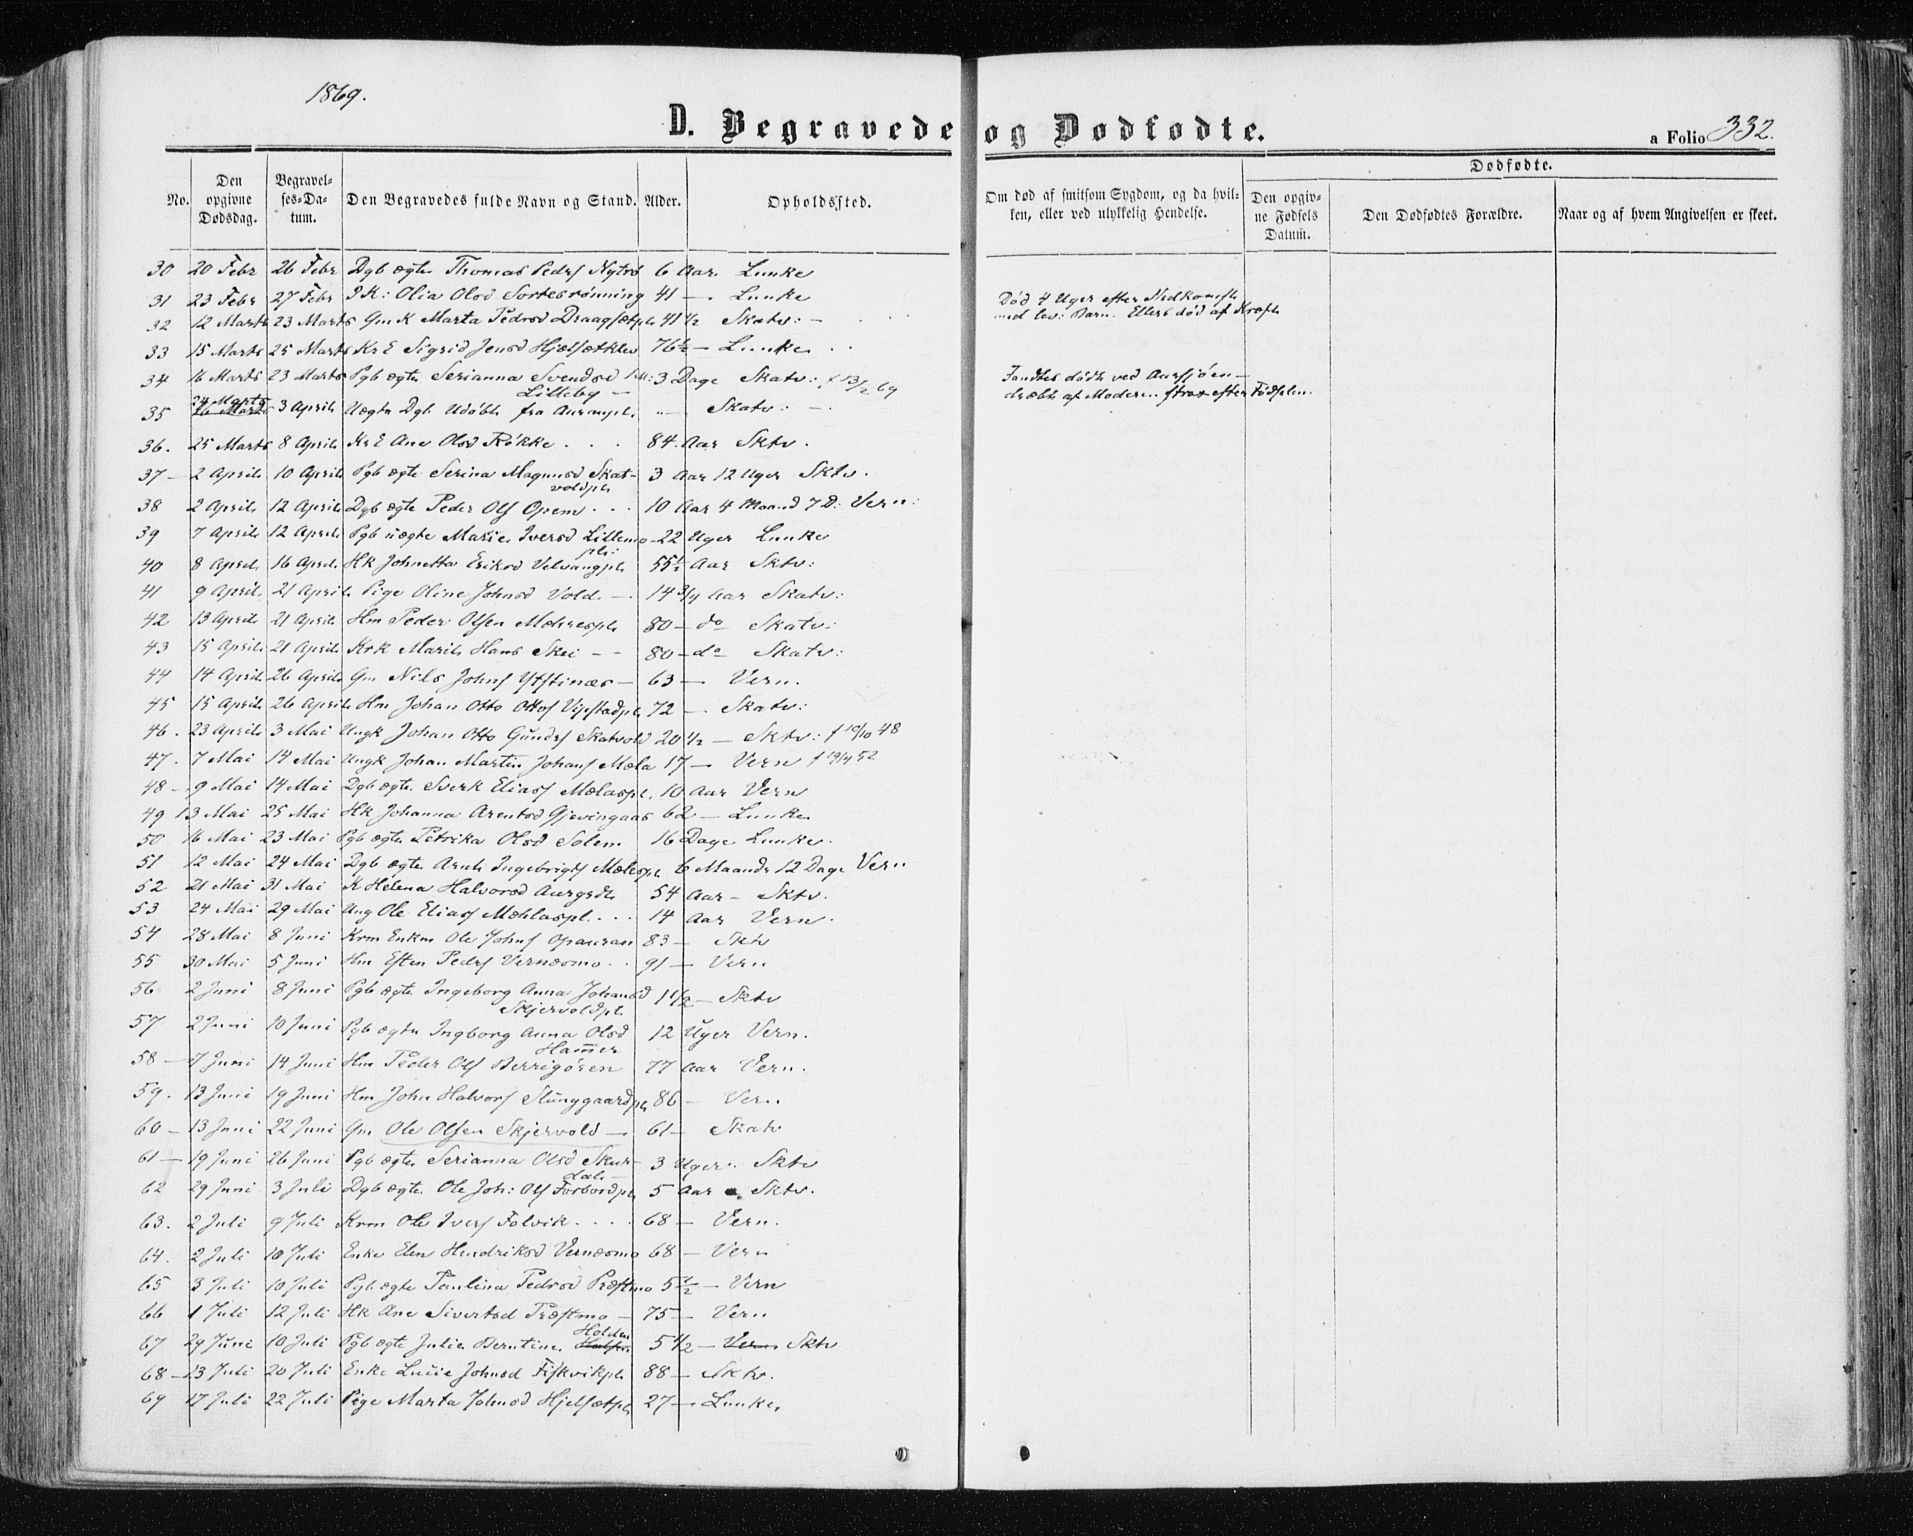 1869.
D. Begravede og Dødfødte.
a Folio 332.
No.
Den opgivne Dødsdag.
Begravelses-Datum.
Den Begravedes fulde Navn og Stand.
Alder.
Opholdssted.
Om død af smitsom Sygdom, og da hvilken, eller ved ulykkelig Hendelse.
Dødfødte.
Den opgivne Fødsels Datum.
Den Dødfødtes Forældre.
Naar og af hvem Angivelsen er skeet.
30 20 Febr 26 Febr Dgb ægte Thomas Peders Nytrø 6 Aar Lunke
31 23 Febr 27 Febr Olia Olsd Sortesrönning 41 — Lunke Död 4 Uger efter Nedkomst
32 12 Marts 23 Marts Gm K Marta Pedersd Draagsetpl 41 1/2 Skatv: — med lev: Barn. Ellers död af Kræft
33 15 Marts 25 Marts Kr E Sigrid Jensd 76½ — Lunke
34 16 Marts 23 Marts Pgb ægte Serianna Svendsd 3 Dage Skatv: f 13/2 69 Fandtes dödt ved Aursjöen —
Lilleby —
35 24 Marts 16 Marts 3 April Uægte Dgb Udöbt fra — Skatv: — dræbt af Moderen strax efter Födselen.
36. 25 Marts 8 April Kr E Ane Olsd Rökke 84. Aar Sktv.
37 — 2 April 10 April Pgb ægte Serina Magnusd Skat- 3 Aar 12 Uger Sktv.
voldpl
38 2 April 12 April Dgb ægte Peder Ols Opem 10 Aar 4 Maaned 7 D: Vern:
39 7 April 12 April Pgb uægte Marie Iversd Lillemo 22 Uger Lunke
pl:
40 8 April 16 April Hk Johnetta Eriksd Velvangpl 55½ Aar Sktv:
41 9 April 21 April Pige Oline Johnsd Vold — 14 3/4 Aar Skatv:
42 13 April 21 April Hm Peder Olsen 80 — do Skatv:
43 15 April 21 April Krk Marit Hans Skei — — 80 — do Skatv:
44 14 April 26 April Gm Nils Johns Ystines — 63 — Vern.
45 15 April 26 April Hm Johan Otto Ottos Vigstadpl 72 — Skatv:
46. 23 April 3 Mai Ungk Johan Otto Gunders Skatvold 20 1/2 — Sktv: f 10/10 48
47. 7 Mai 14 Mai Ungk Johan Martin Johans Mæla 17 — Vern f 19/4 52
48 — 9 Mai 14 Mai Dgb ægte Sverk Elias Mælaspl. 10 Aar Vern
49 13 Mai 25 Mai Hk Johanna Arentsd Gjevingaas 62 — Lunke
50 16 Mai 23 Mai Pgb ægte Petrika Olsd Solem 16 Dage Lunke.
51 12 Mai 24 Mai Dgb ægte Arnt Ingebrigts Mælespl 6 Maaneder 12 Dage Vern
52 21 Mai 31 Mai K Helena Halvorsd 54 Aar — Sktv.
53 24 Mai 29 Mai Ung Ole Elias Mæhlaspl. 14 Aar Vern.
54 28 Mai 8 Juni Krm Enkm Ole Johns Opauran 83 — Sktv
55 30 Mai 5 Juni Hm Esten Peders Vernesmo 91 — Vern
56 2 Juni 8 Juni Pgb ægte Ingeborg Anna Johansd 1 1/2 — Sktv
Skjervoldpl
57 2 Juni 10 Juni Pgb ægte Ingborg Anna Olsd 12 Uger Vern.
Hammer
58 — 7 Juni 14 Juni Hm Peder Ols Berrigösen 77 Aar Vern.
59. 13 Juni 19 Juni Hm John Halvors Stunggaardpl 86 — Vern
60 — 13 Juni 22 Juni Gm Ole Olsen Skjervold — 61 — Skatv
61 — 19 Juni 26 Juni Pgb ægte Serianna Olsd Skur- 3 Uger Sktv
dal —
62 29 Juni 3 Juli Dgb ægte Ole Joh: Ols Forbordpl 5 Aar Sktv.
63. 2 Juli 9 Juli Krm Ole Ivers Folvik 68 — Vern.
64. 2 Juli 10 Juli Enke Elen Hendriksd Vernesmo 68 — Vern
65 3 Juli 10 Juli Pgb ægte Paulina Pedersd Præstmo 5½ — Vern
66 1 Juli 12 Juli Hk Ane Sivertsd Præstmo — 75 — Vern
67 29 Juni 10 Juli Pgb ægte Julie Berntine Holden 5 1/2 — Vern Sktv
68 — 13 Juli 20 Juli Enke Lucie Johnsd Fiskvikpl 88 — Sktv.
69 17 Juli 22 Juli Pige Marta Johnsd Hjelsetpl 27 — Lunke.